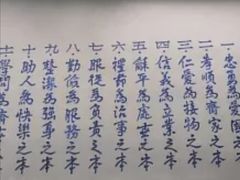 一·忠勇為愛國
二·孝順為齊家之本
三·仁愛為接物之本
四·信義為立業之本
五·龢平為處世之本
六·禮節為治事之本
七·服從為負責之本
八·勤儉為服務之本
九·整潔為強身之本
十·助人為快樂之本
十一·學問為濟世